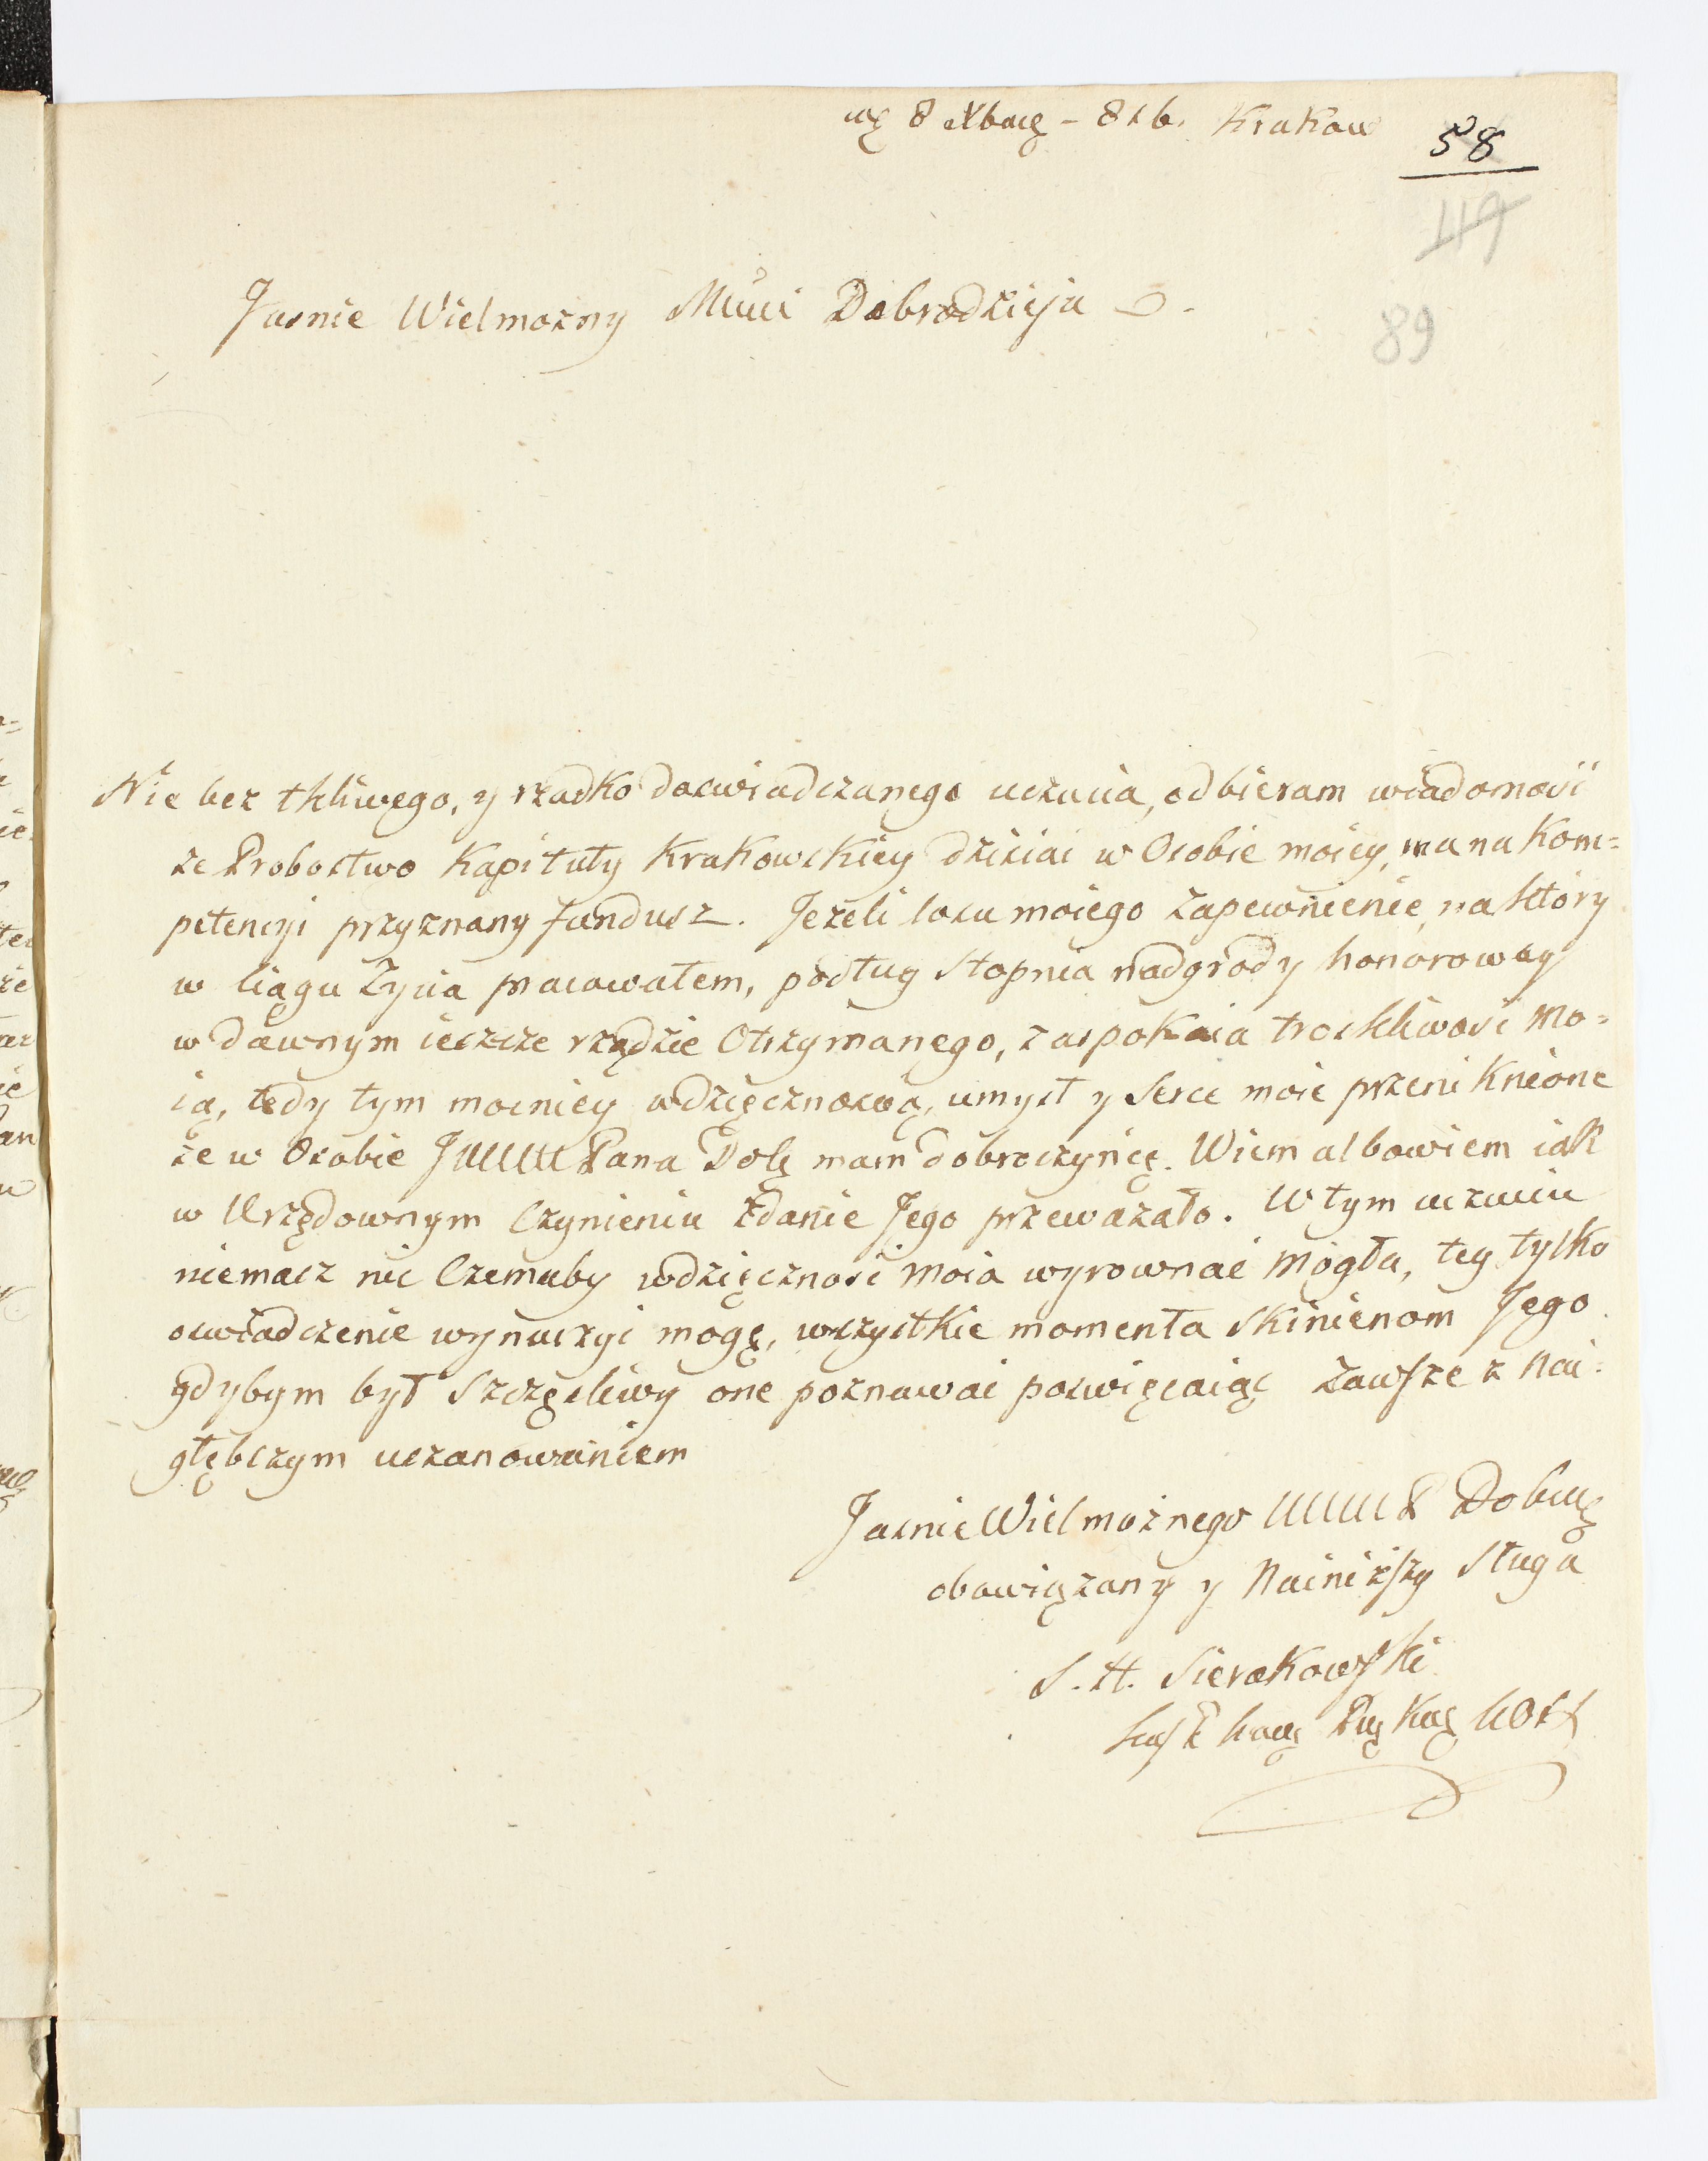 8 Xbra - 816. Krakow
58
119
89
Jasnie Wielmozny Mci Dobrodzieju
Nie bez tkliwego, y rzadko doswiadczanego uczucia, odbieram wiadomość
ze Probostwo Kapituły Krakowskiey dzisiai w Osobie moiey, ma na Kom=
petencyi przyznany fundusz. Jeżeli losu moiego zapewnienie, na który
w ciągu Życia pracowałem, podług stopnia nadgrody honorowey
w dawnym ieszcze rządzie Otrzymanego, zaspokaia troskliwość mo=
ią, tedy tym mocniey wdzięcznością, umysł y Serce moie przeniknione
że w Osobie JWW Pana Dobę mam dobroczyńcę. Wiem albowiem iak
w Urzędownym Czynieniu Zdanie Jego przeważało. W tym uczuciu
niemasz nic Czemuby wdzięczność moia wyrownać mogła, tey tylko
oswiadczenie wynurzyć mogę, wszystkie momenta skinienom Jego
gdybym był szczęśliwy one poznawać poswięcaiąc Zawsze z Nai=
głębszym uszanowaniem
Jasnie Wielmożnego Dobę
obowiązany y Nainiższy sługa
S. H. Sierakowski